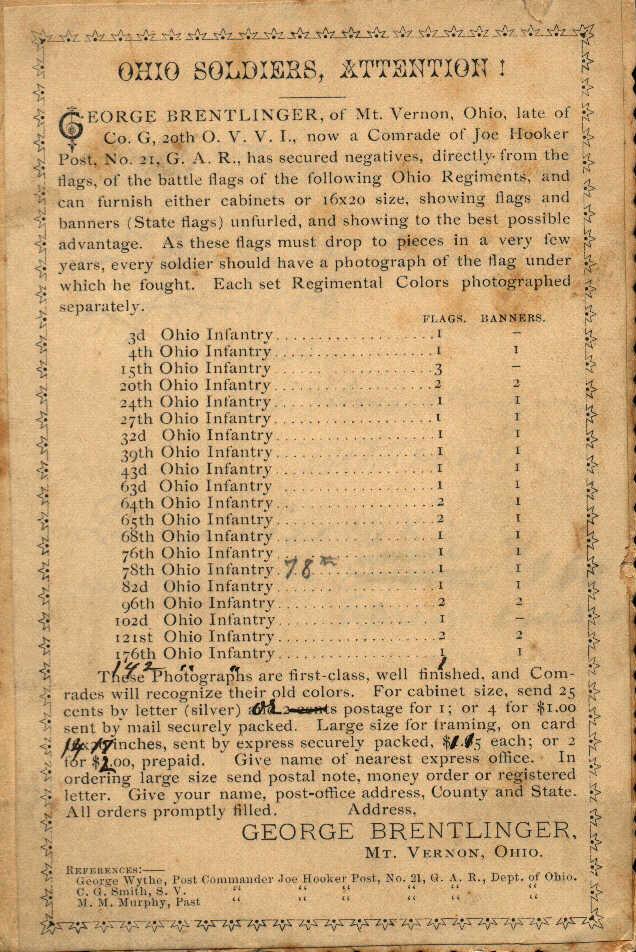 OHIO SOLDIERS, ATTENTION!
GEORGE BRENTLINGER, of Mt. Vernon, Ohio, late of
Co. G, 20th O. V. V. I., now a Comrade of Joe Hooker
Post, No. 21, G. A. R., has secured negatives, directly from the
flags, of the battle flags of the following Ohio Regiments, and
can furnish either cabinets or 16x20 size, showing flags and
banners (State flags) unfurled, and showing to the best possible
advantage. As these flags must drop to pieces in a very few
years, every soldier should have a photograph of the flag under
which he fought. Each set Regimental Colors photographed
separately.
FLAGS. BANNERS.
3d Ohio Infantry 1 –
4th Ohio Infantry 1 1
15th Ohio Infantry 3 –
20th Ohio Infantry 2 2
24th Ohio Infantry 1 1
27th Ohio Infantry 1 1
32d Ohio Infantry 1 1
39th Ohio Infantry 1 1
43d Ohio Infantry 1 1
63d Ohio Infantry 1 1
64th Ohio Infantry 2 1
65th Ohio Infantry 2 1
68th Ohio Infantry 1 1
76th Ohio Infantry 1 1
78th Ohio Infantry 78th 1 1
82d Ohio Infantry 1 1
96th Ohio Infantry 2 2
102d Ohio Infantry 1 –
121st Ohio Infantry 2 2
176th Ohio Infantry 1 1
142 " " 1
These Photographs are first-class, well finished, and Com-
rades will recognize their old colors. For cabinet size, send 25
cents by letter (silver) or 2 cents postage for 1; or 4 for $1.00
sent by mail securely packed. Large size for framing, on card
14x17 inches, sent by express securely packed, $1.15 each; or 2
for $2.00, prepaid. Give name of nearest express office. In
ordering large size send postal note, money order or registered
letter. Give your name, post-office address, County and State.
All orders promptly filled. Address,
GEORGE BRENTLINGER,
MT. VERNON, OHIO.
REFERENCES:—
George Wythe, Post Commander Joe Hooker Post, No. 21, G. A. R., Dept. of Ohio.
C. G. Smith, S. V. " " " " " "
M. M. Murphy, Past " " " " " "